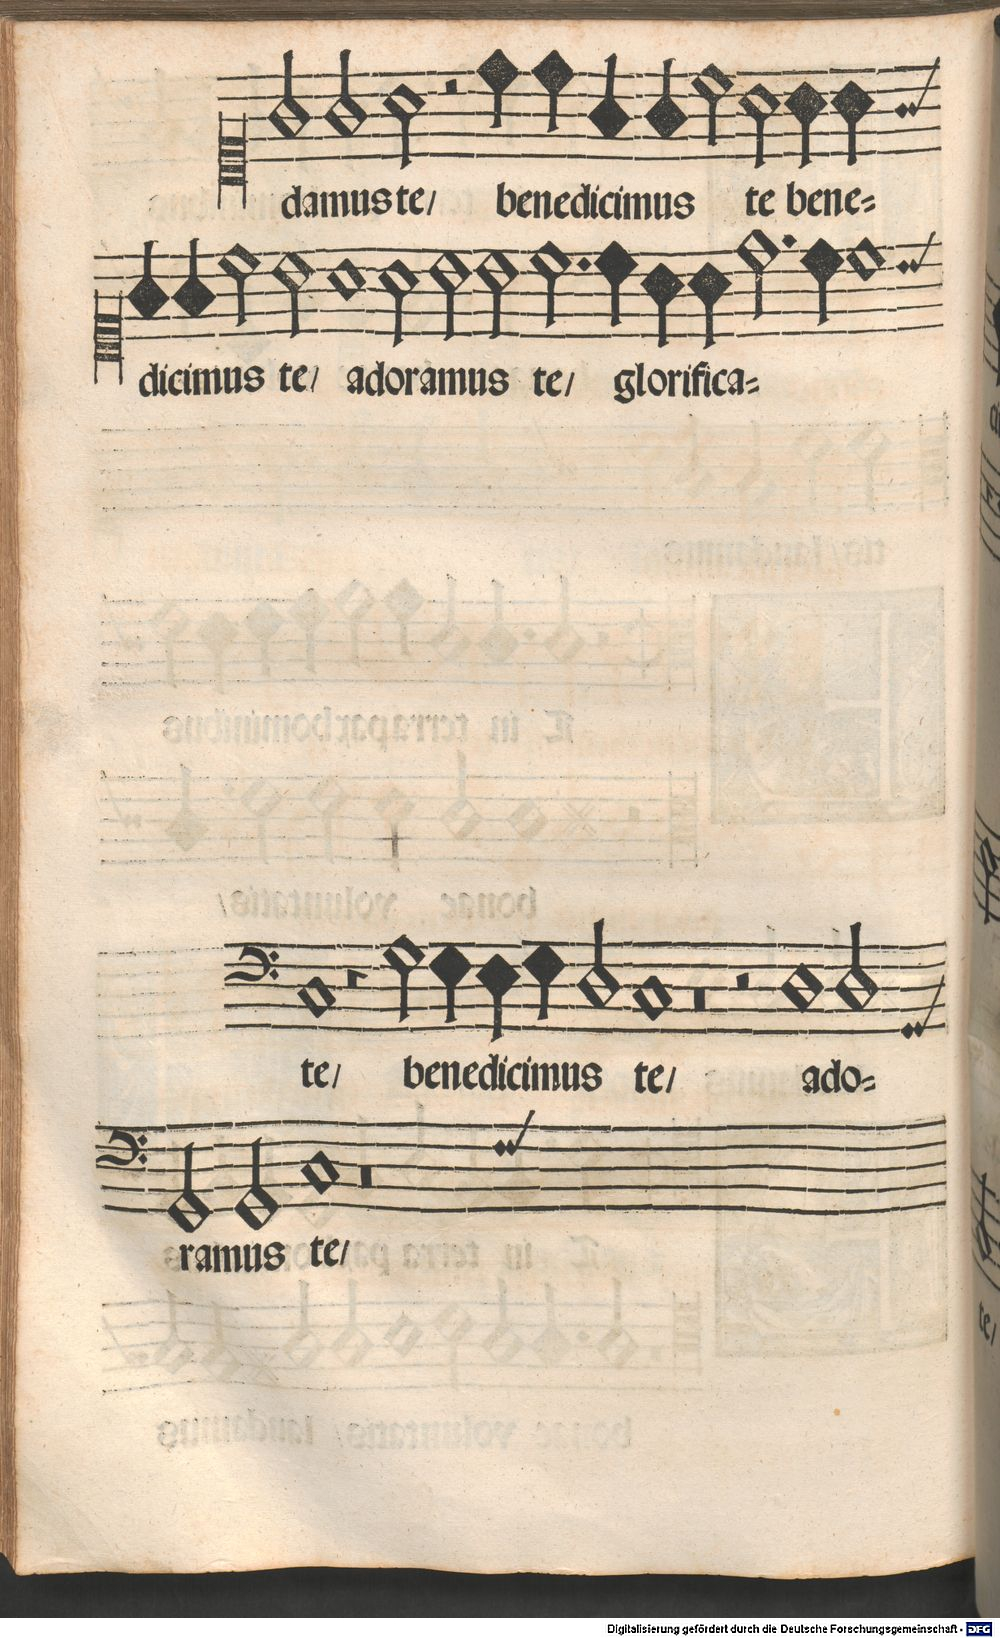 damus te/ benedicimus te bene=
dicimus te/ adoramus te/ glorifica=
te/ benedicimus te/ ado=
ramus te/
te/
Digitalisierung gefördert durch die Deutsche Forschungsgemeinschaft - DFG